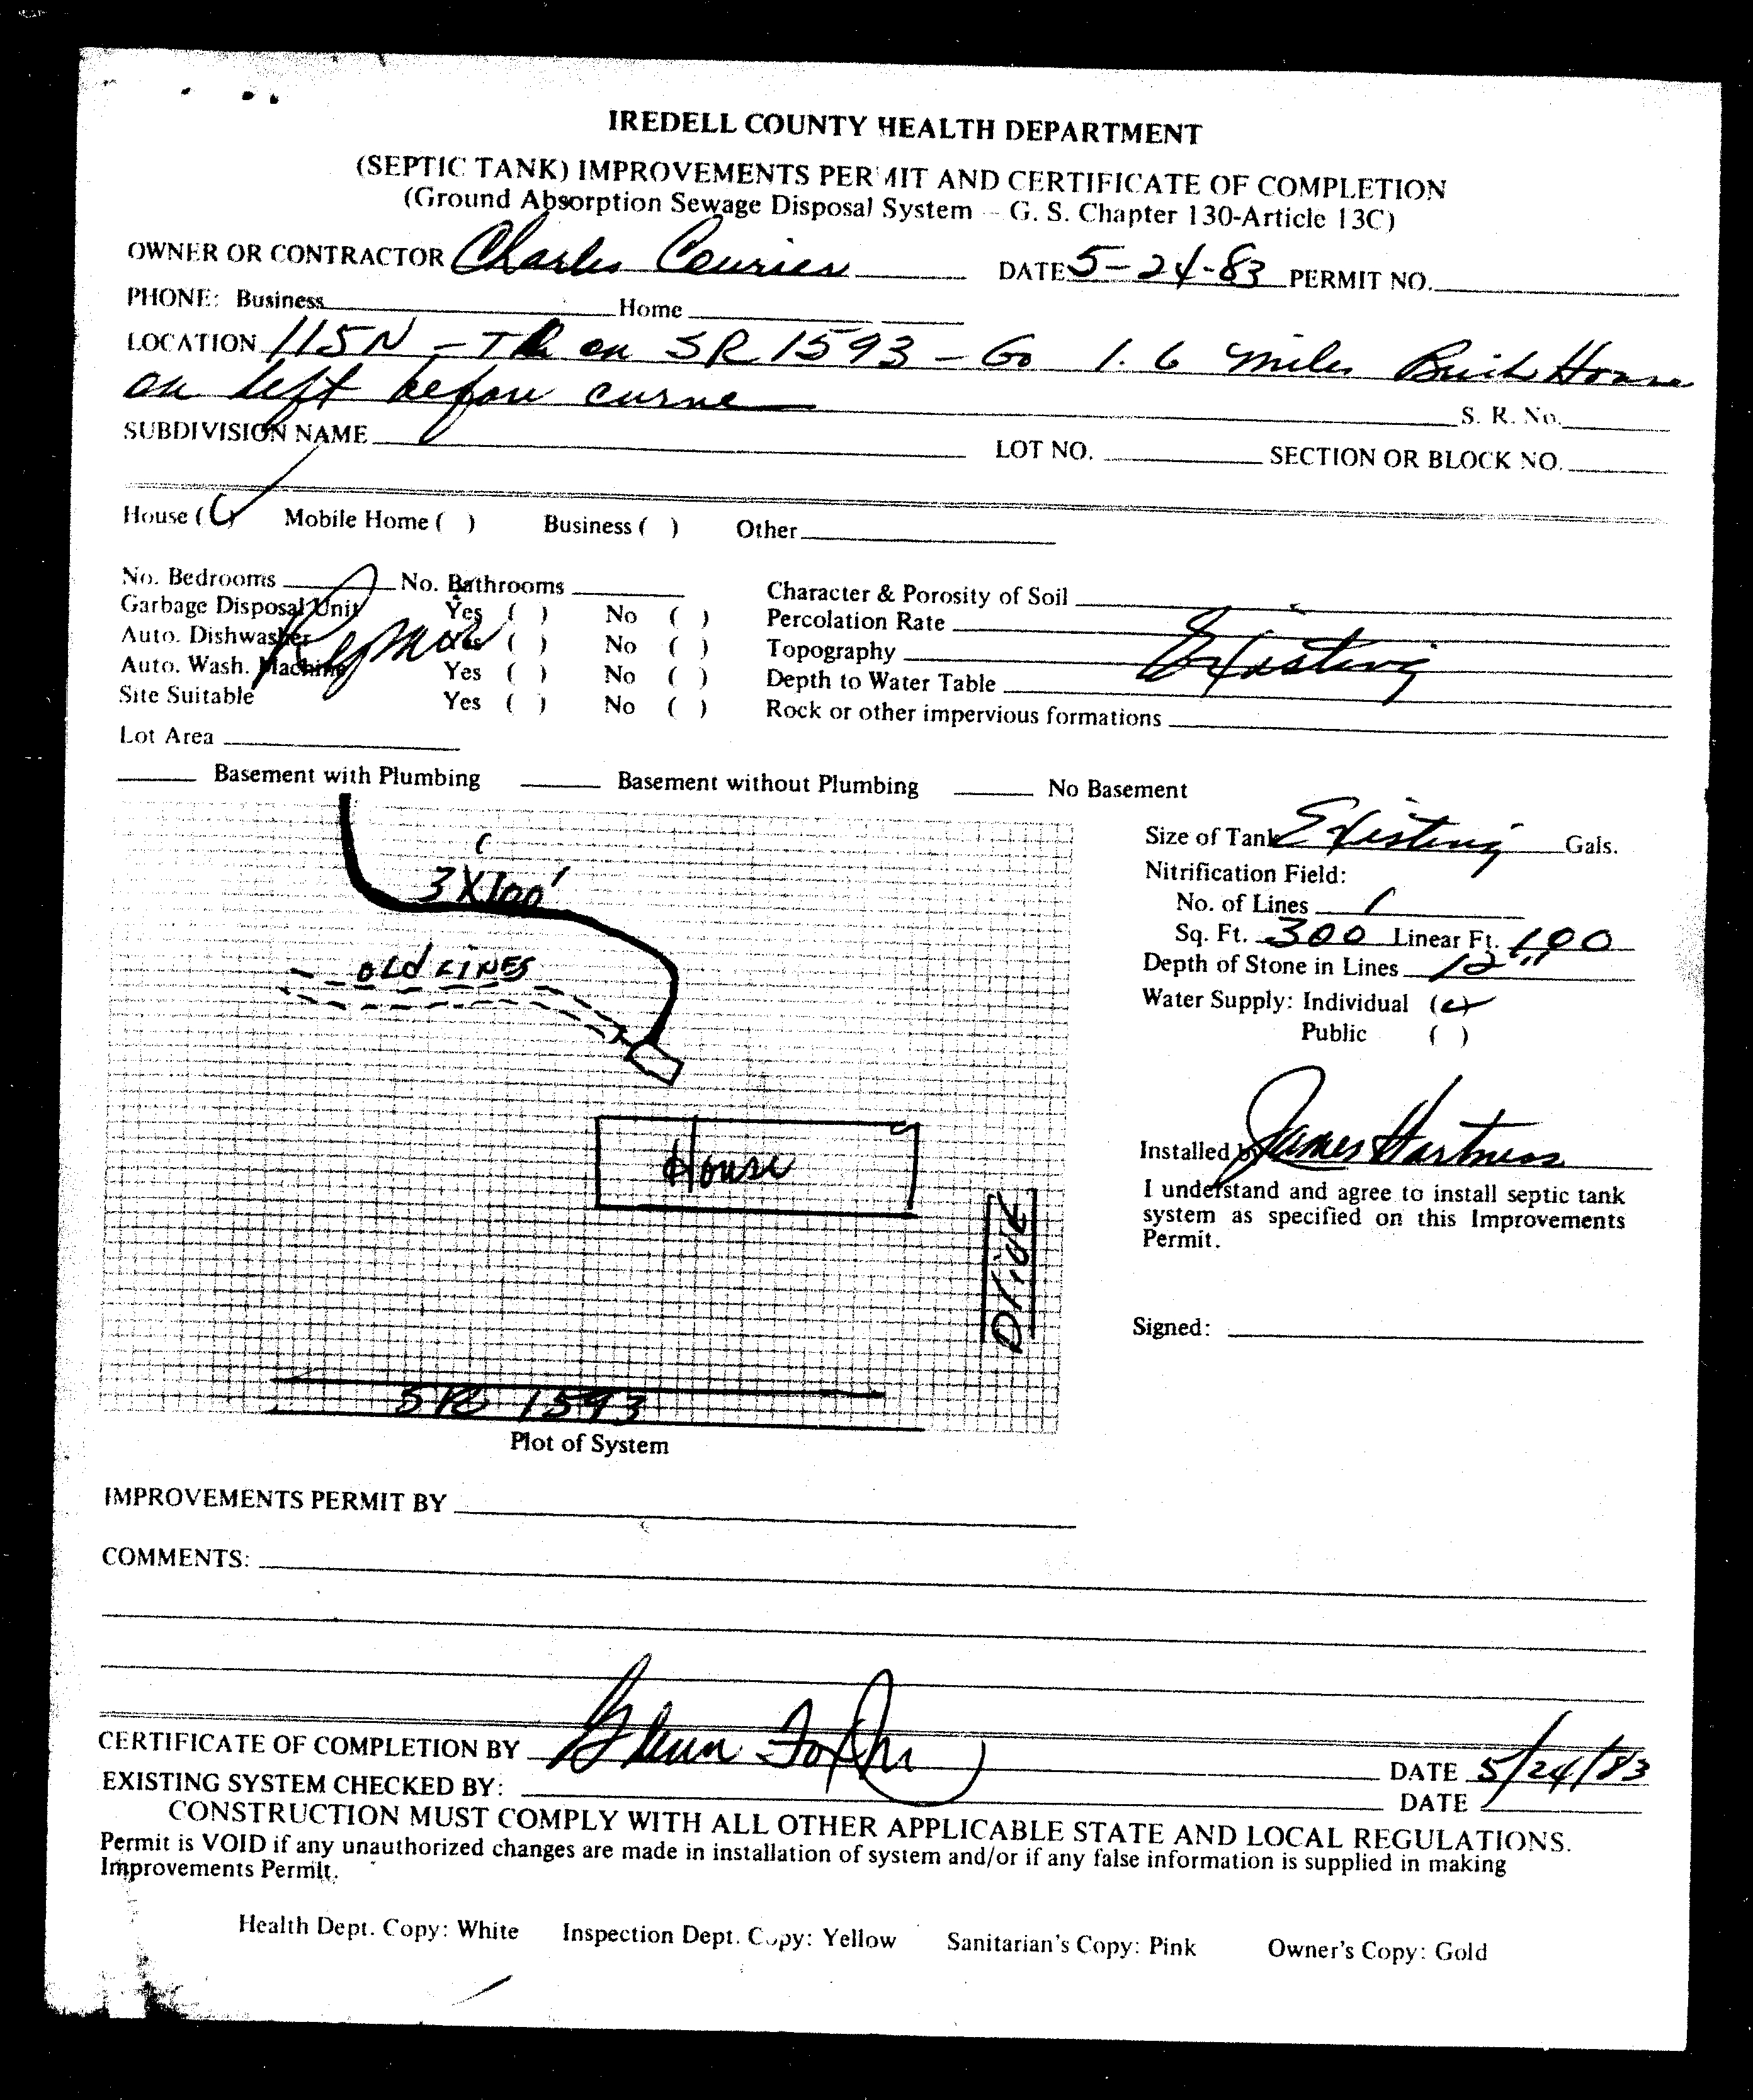 IREDELL COUNTY HEALTH DEPARTMENT
(SEPTIC TANK) IMPROVEMENTS PERMIT AND CERTIFICATE OF COMPLETION
(Ground Absorption Sewage Disposal System - G. S. Chapter 130-Article 13C)
OWNER OR CONTRACTOR Charles DATE 5-24-83 PERMIT NO.
PHONE: Business Home
LOCATION 115N - TR on SR 1593 - Go 1.6 miles Brick House
on left before curve S. R. No.
SUBDIVISION NAME LOT NO. SECTION OR BLOCK NO.
House ( ) Mobile Home ( ) Business ( ) Other
No. Bedrooms No. Bathrooms Character & Porosity of Soil
Garbage Disposal Unit Yes ( ) No ( ) Percolation Rate
Auto. Dishwasher Yes ( ) No ( ) Topography Existing
Auto. Wash. Machine Yes ( ) No ( ) Depth to Water Table
Site Suitable Yes ( ) No ( ) Rock or other impervious formations
Lot Area
Basement with Plumbing Basement without Plumbing No Basement
Size of Tank Existing Gals.
Nitrification Field:
3 X 100'
No. of Lines 1
Sq. Ft. 300 Linear Ft. 100
OLD LINES
Depth of Stone in Lines 12"
Water Supply: Individual ( )
Public ( )
House
Installed by James Hartness
I understand and agree to install septic tank
system as specified on this Improvements
Permit.
Drive
Signed:
SR 1593
Plot of System
IMPROVEMENTS PERMIT BY
COMMENTS:
CERTIFICATE OF COMPLETION BY Glenn DATE 5/24/83
EXISTING SYSTEM CHECKED BY: DATE
CONSTRUCTION MUST COMPLY WITH ALL OTHER APPLICABLE STATE AND LOCAL REGULATIONS.
Permit is VOID if any unauthorized changes are made in installation of system and/or if any false information is supplied in making
Improvements Permit.
Health Dept. Copy: White Inspection Dept. Copy: Yellow Sanitarian's Copy: Pink Owner's Copy: Gold